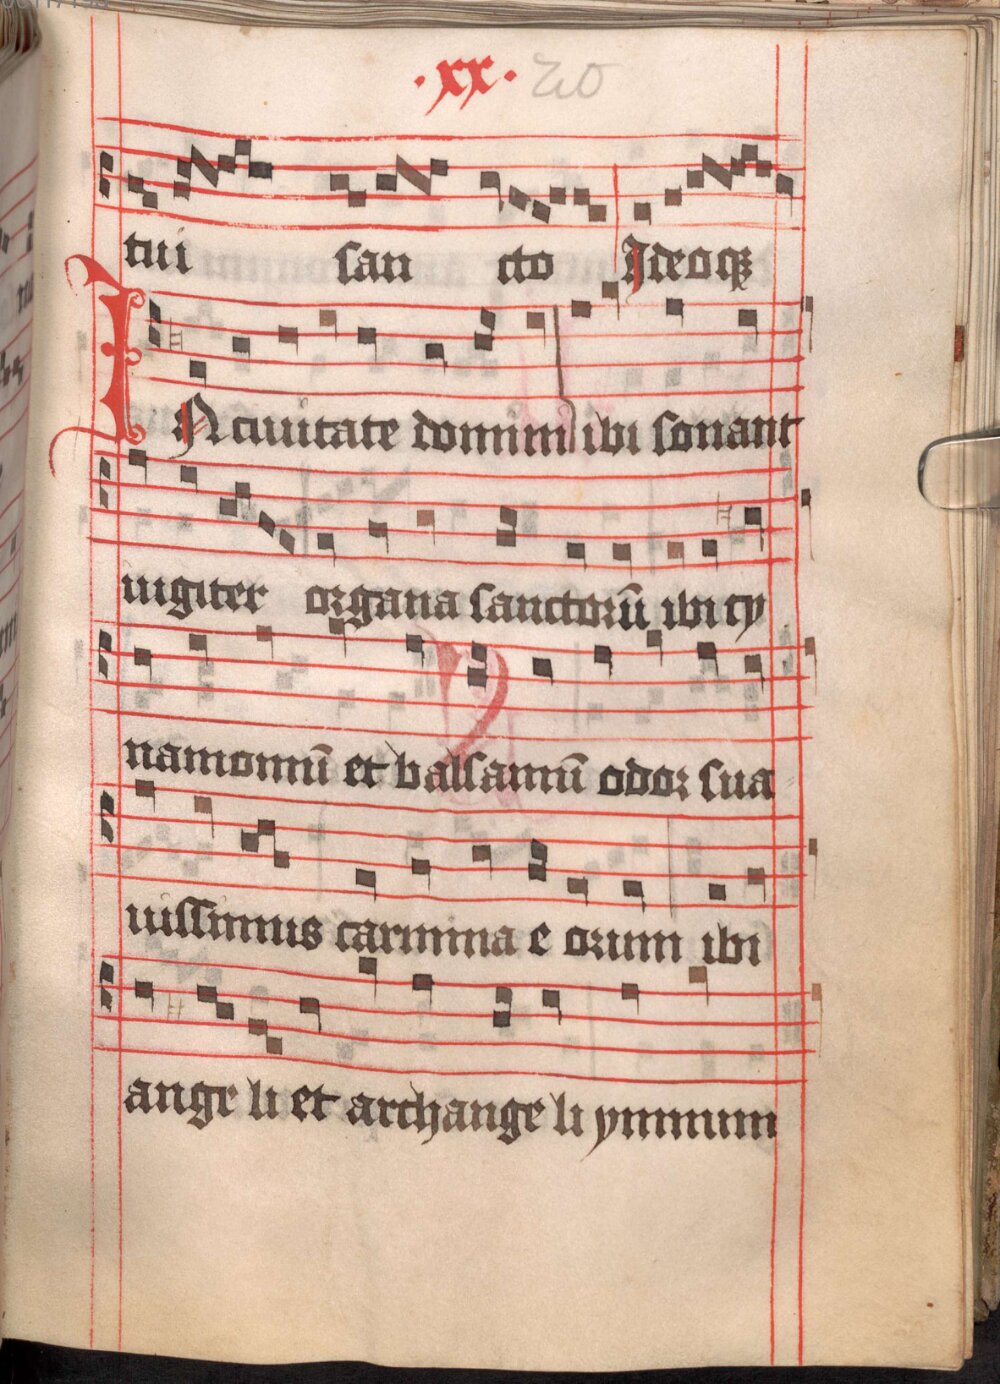 ·xx· 20
tui san cto Ideoqꝫ
IN ciuitate domini ibi sonant
iugiter organa sanctorū ibi cy
namomū et balsamū odor sua
uissimus carmina e orum ibi
ange li et archange li ymnum